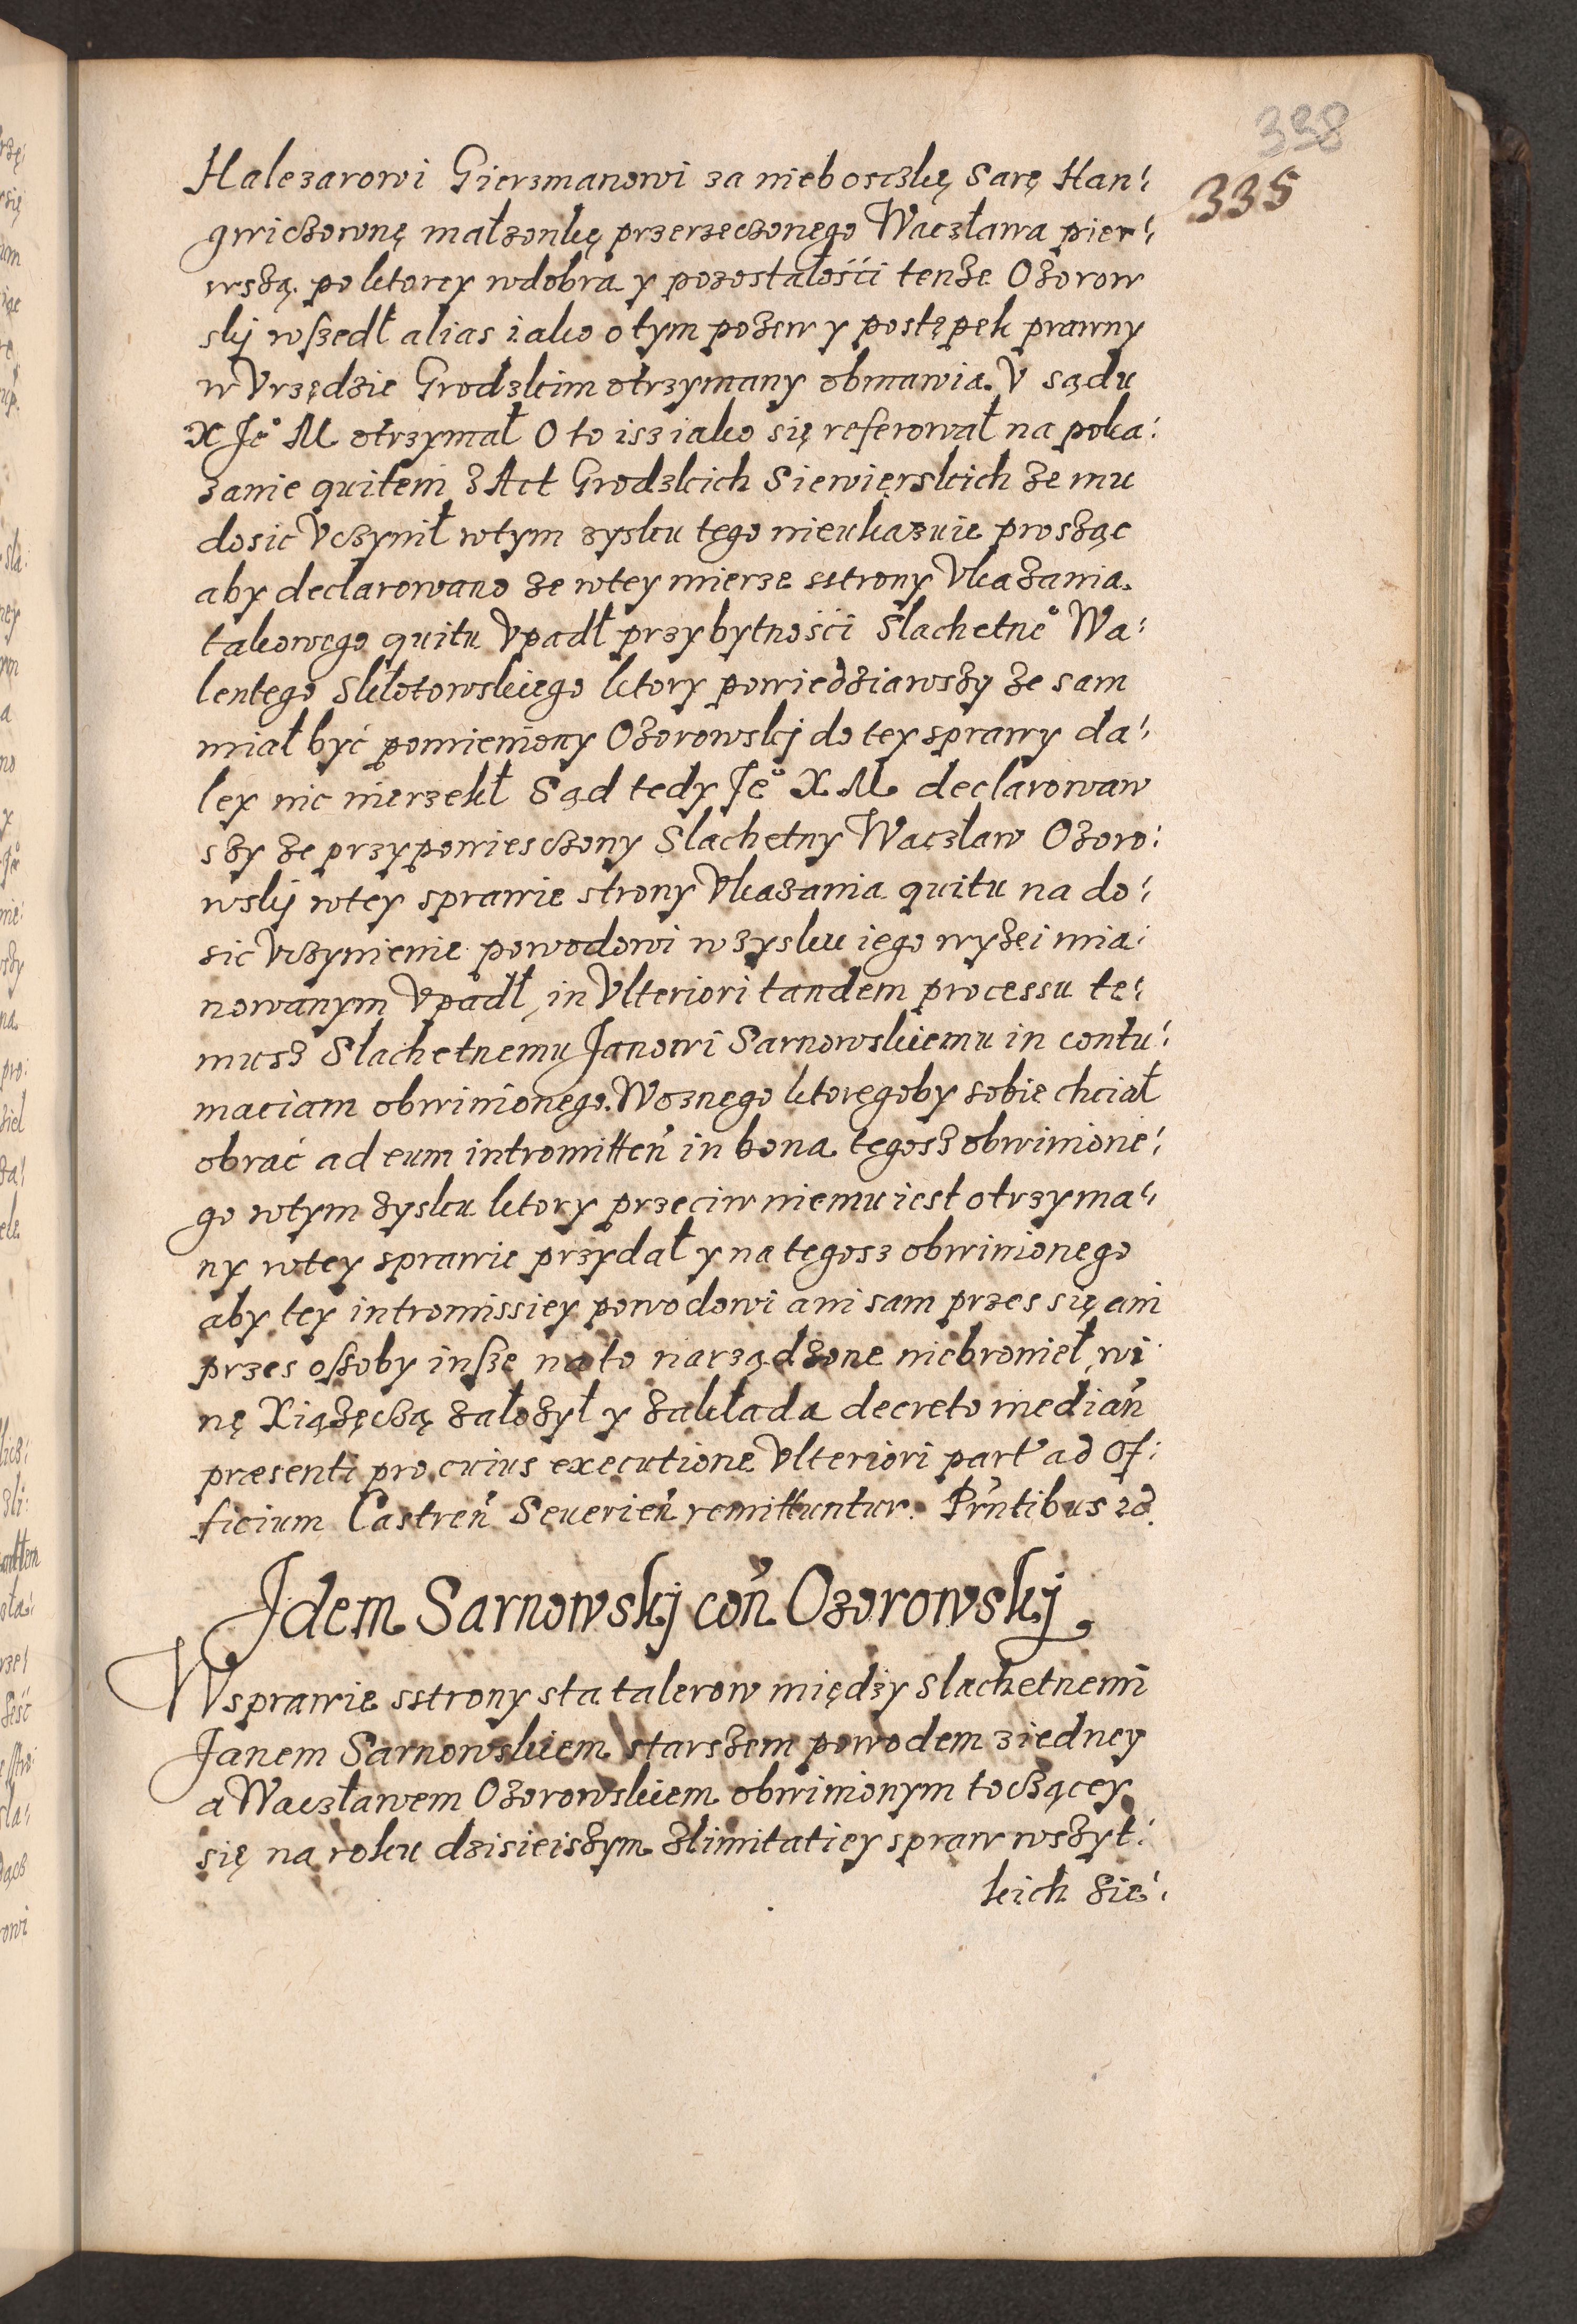 338
335
Halezarowi Gierzmanowi za niebosczkę Sarę Han:
gwiczownę małzonkę przerzeczonego Waczława pier:
wszą. po ktorey wdobra y pozostałośći tenze Ozorow
skj wszedł alias iako o tym pozew y postępek prawny
w Vrzędzie Grodzkim otrzymany obmawia. V sądu
X Je° M otrzymał O to isz iako się referował na poka:
zanie quitem z Act Grodzkich Siewięrskich ze mu
dosic Vczynił wtym zysku tego nieukazuie prosząc
aby declarowano ze wtey mierze sstrony Vkazania
takowego quitu Vpadł przy bytnośći Slachetne° Wa:
lentego Skłotowskiego ktory powiedziawszy ze sam
miał być pomieniony Ozorowskj do tey sprawy da:
ley nic nierzekł Sąd tedy Je° X M declarowaw
szy ze przypowiesczony Slachetny Waczław Ozoro:
wskj wtey sprawie strony Vkazania quitu na do:
sic Vczynienie powodowi w zysku iego wyżei mia:
nowanym Vpadł, in Vlteriori tandem processu te:
musz Slachetnemu Janowi Sarnowskiemu in contu:
maciam obwinionego. Woznego ktoregoby sobie chciał
obrać ad eum intromitteń in bona tegosz obwinione:
go wtym zysku ktory przeciw niemu iest otrzyma:
ny wtey sprawie przydał y na tegosz obwinionego
aby tey intromissiey powodowi ani sam przes się ani
przes oszoby insze na to narządzone niebronieł, wi
nę Xiązęczą załozył y zakłada decreto mediań
præsenti pro cuius executione Vlteriori part' ad Of:
ficium Castreń Seuerień remittuntur. Prńtibus id.
Jdem Sarnowskj coń Ozorowskj
W sprawie sstrony sta talerow między Slachetnemi
Janem Sarnowskiem starszem powodem ziedney
a Waczławem Ozorowskiem obwinionym toczącey
się na roku dzisieiszym zlimitatiey spraw wszyt:
kich zie: